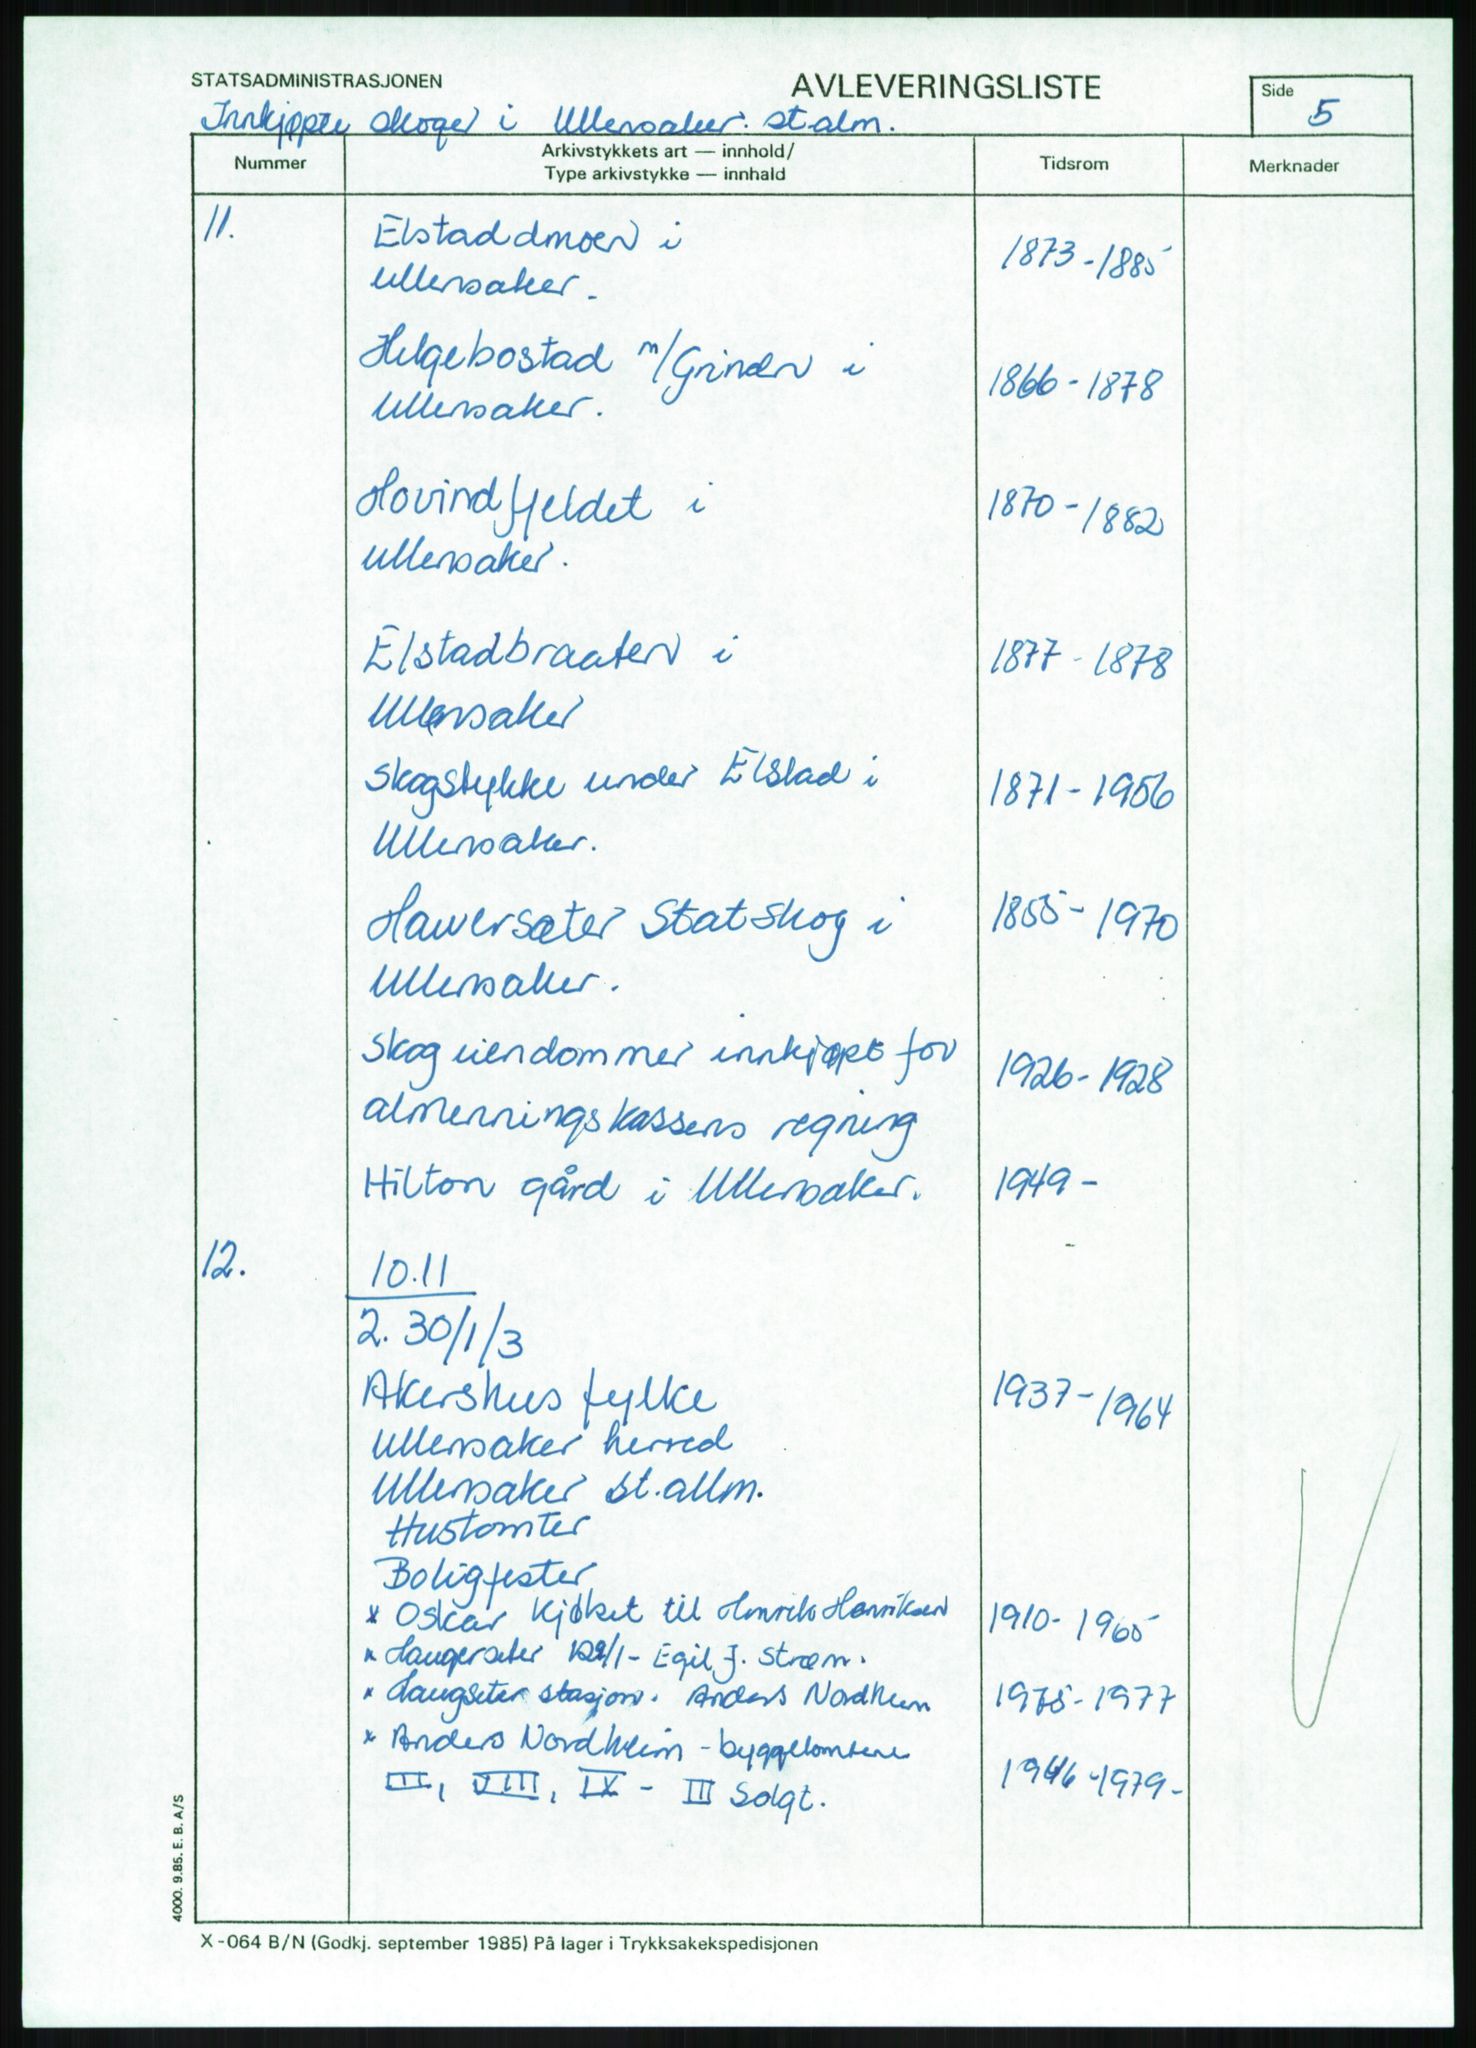 STATSADMINISTRASJONEN
AVLEVERINGSLISTE
Side
5
Innkjøpte skoger i Ullensaker st.alm.
Nummer
Arkivstykkets art — innhold/
Type arkivstykke — innhald
Tidsrom
Merknader
11.
Elstaddmoen i
Ullensaker.
1873-1885
Helgebostad m/Grinden i
Ullensaker.
1866-1878
Hovindfjeldet i
Ullensaker.
1870-1882
Elstadbraaten i
Ullensaker
1877-1878
Skogstykke under Elstad i
Ullensaker.
1871-1956
Hauersæter Statskog i
Ullensaker.
1855-1970
Skogeiendommer innkjøpt for
almenningskassens regning
1926-1928
Hilton gård i Ullensaker.
1949-
12.
10.11
2. 30/1/3
Akershus fylke
1937-1964
Ullensaker herred
Ullensaker st.allm.
Hustomter
Boligfester
* Oskar Kjøket til Henrik Henriksen
1910-1965
* Haugerseter - Egil J. Strøm.
* Haugseter stasjon. Anders Nordheim
1975-1977
* Anders Nordheim - byggetomtene
III, VIII, IX - III Solgt.
1946-1979-
4000. 9.85. E. B. A/S
X-064 B/N (Godkj. september 1985) På lager i Trykksakekspedisjonen